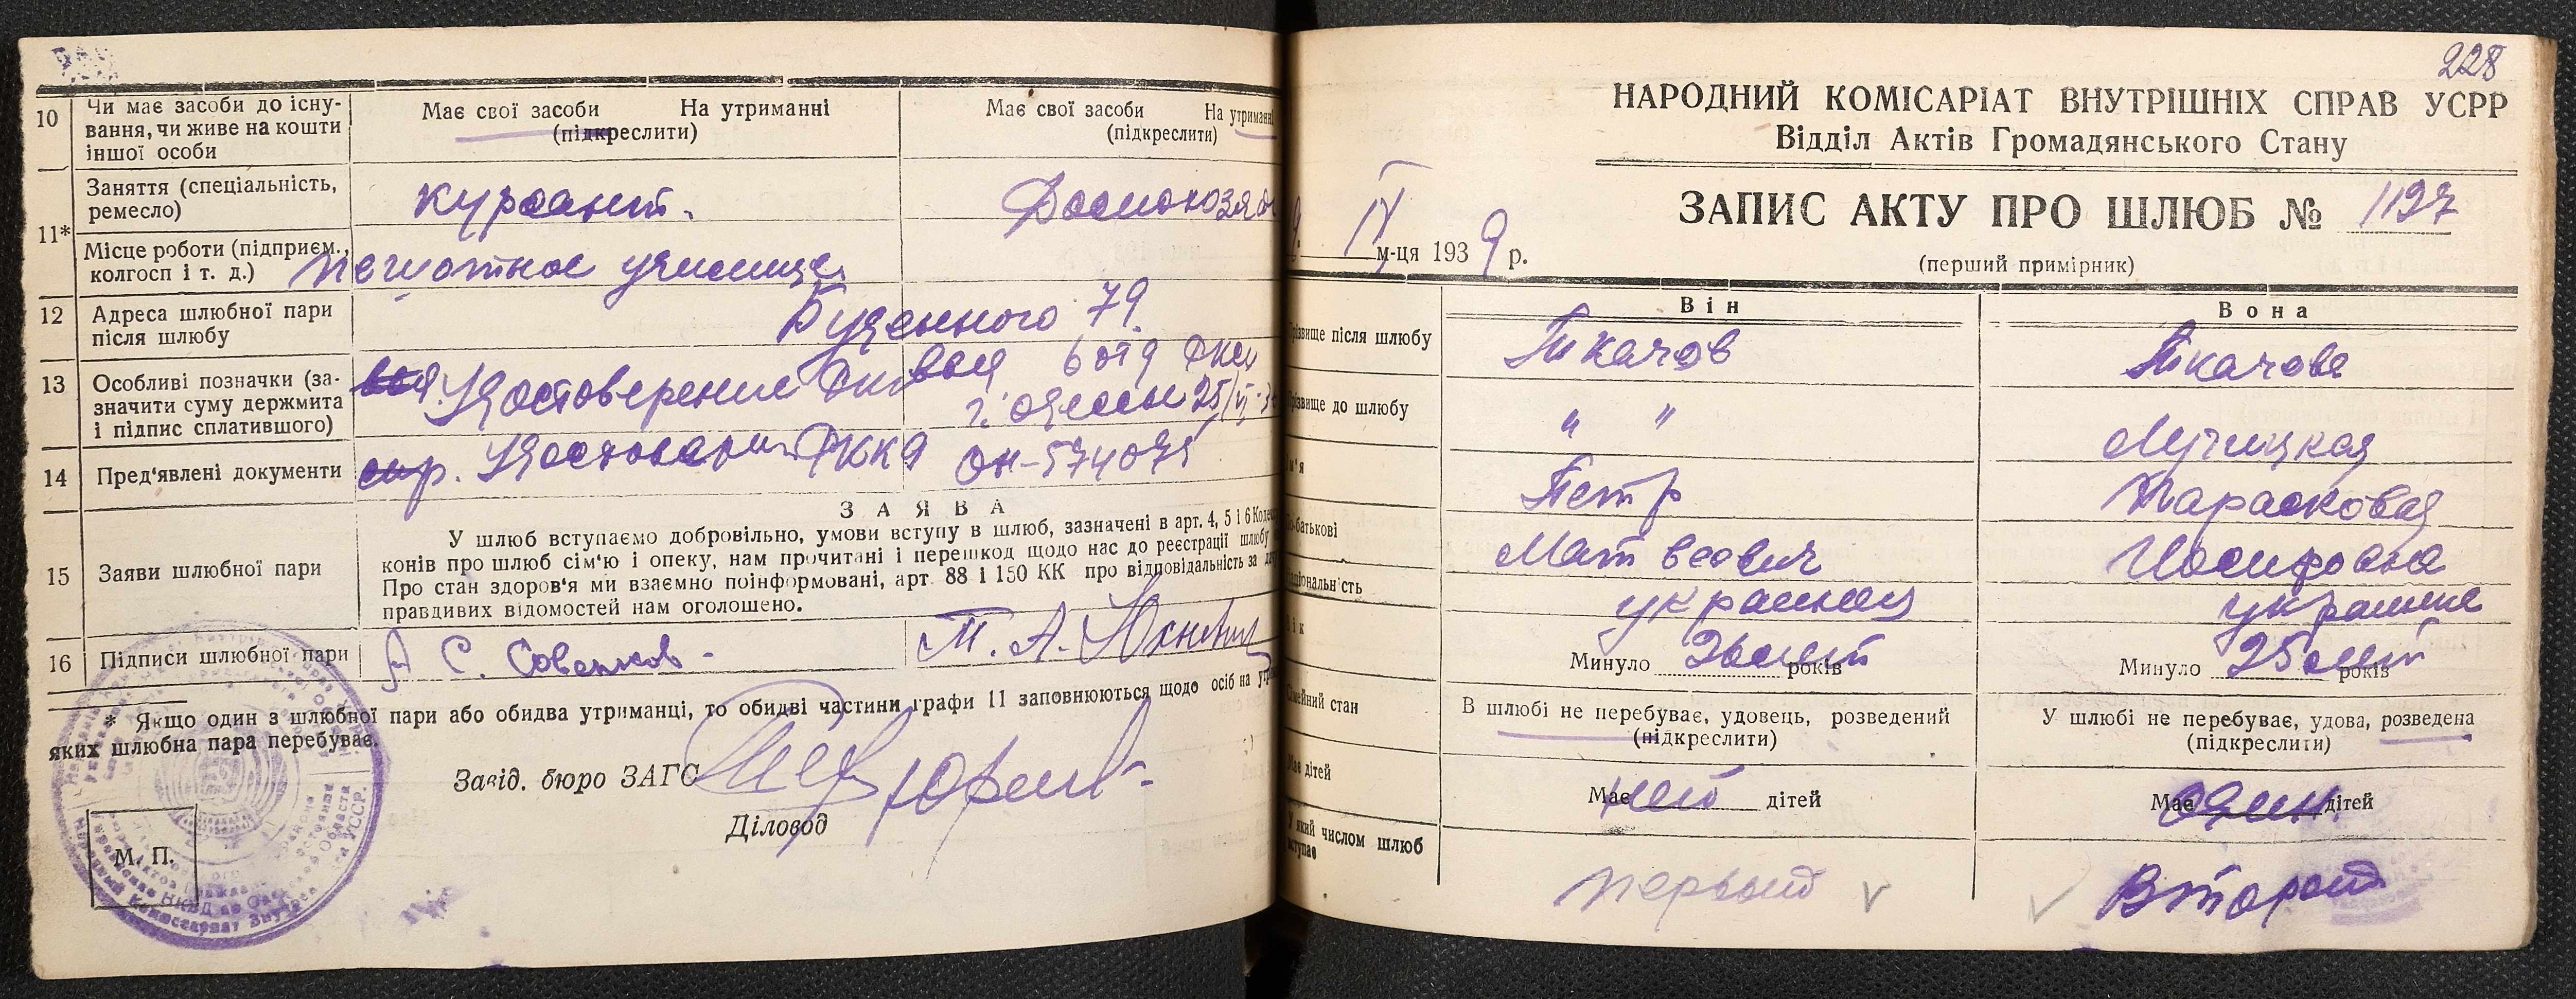 10 Чи має засоби до існу-
вання, чи живе на кошти
іншої особи
Має свої засоби На утриманні
(підкреслити)
Має свої засоби На утриманні
(підкреслити)
11* Заняття (спеціальність,
ремесло)
курсант.
Домохозяй
Місце роботи (підприєм.,
колгосп і т. д.)
пехотное училище
12 Адреса шлюбної пари
після шлюбу
Буденного 79.
13 Особливі позначки (за-
значити суму держмита
і підпис сплатившого)
Удостоверение
6 отд РКМ
г. Одессы 25/VI-3
14 Пред'явлені документи
РККА ОН-574075
З А Я В А
15 Заяви шлюбної пари
У шлюб вступаємо добровільно, умови вступу в шлюб, зазначені в арт. 4, 5 і 6 Кодекс
конів про шлюб сім'ю і опеку, нам прочитані і перешкод щодо нас до реєстрації шлюбу
Про стан здоров'я ми взаємно поінформовані, арт. 88 і 150 КК про відповідальність за
правдивих відомостей нам оголошено.
16 Підписи шлюбної пари
* Якщо один з шлюбної пари або обидва утриманці, то обидві частини графи 11 заповнюються щодо осіб на
яких шлюбна пара перебуває.
Завід. бюро ЗАГС
Діловод
М. П.
228
НАРОДНИЙ КОМІСАРІАТ ВНУТРІШНІХ СПРАВ УСРР
Відділ Актів Громадянського Стану
ЗАПИС АКТУ ПРО ШЛЮБ № 1197
IV м-ця 1939 р.
(перший примірник)
Він
Вона
різвище після шлюбу
Ткачов
Ткачова
різвище до шлюбу
" "
Лучицкая
м'я
Петр
Парасковея
о-батькові
Матвеевич
Иосиповна
аціональність
украинец
украинка
ік
Минуло 26 лет років
Минуло 25 лет років
імейний стан
В шлюбі не перебуває, удовець, розведений
(підкреслити)
У шлюбі не перебуває, удова, розведена
(підкреслити)
Має дітей
Має нет дітей
Має один дітей
У який числом шлюб
вступає
первый
Второй